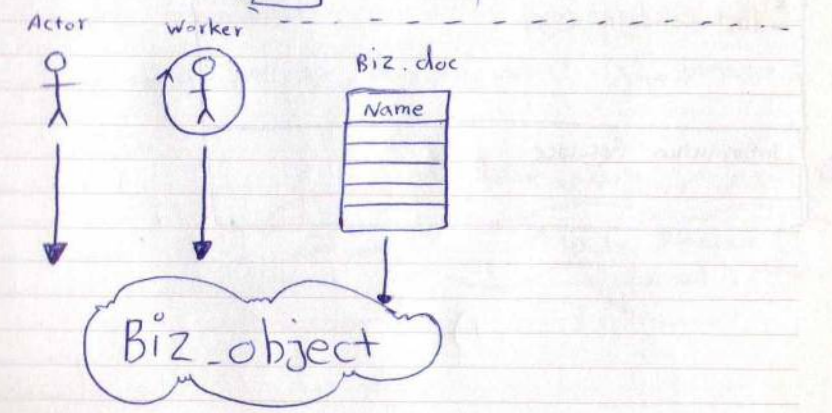 Actor
Worker
Biz.doc
Name
Biz_object